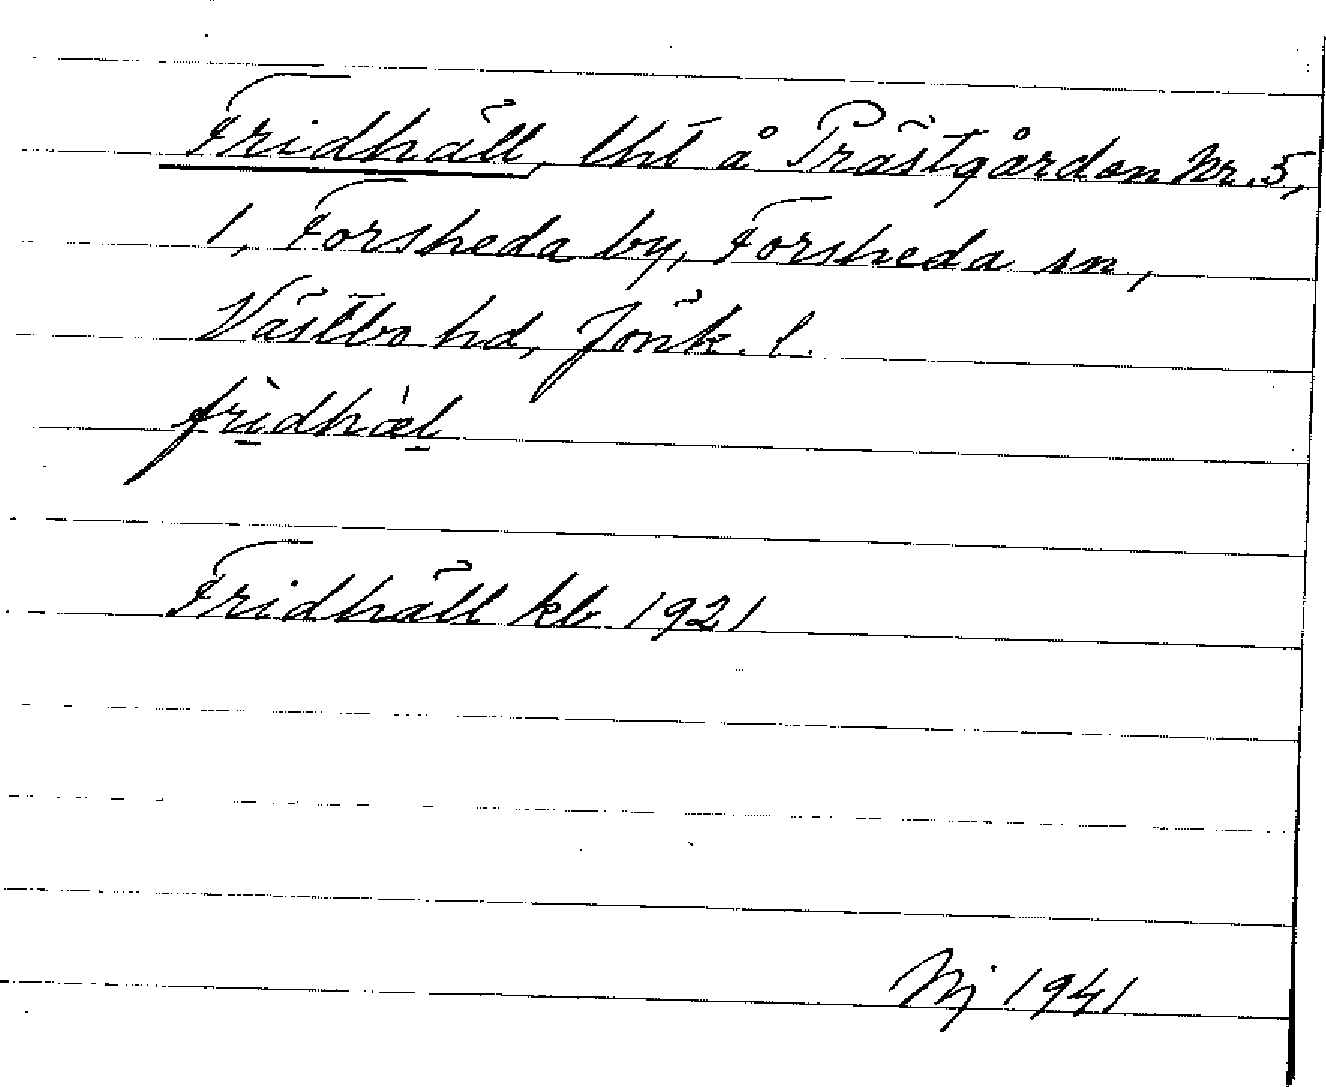 Fridhäll, lht å Prästgården Nr. 5,
1, Forsheda by, Forsheda sn,
Västbo hd, Jönk. l.
fri̱dhæl̠
Fridhäll kb 1921
Nj 1941